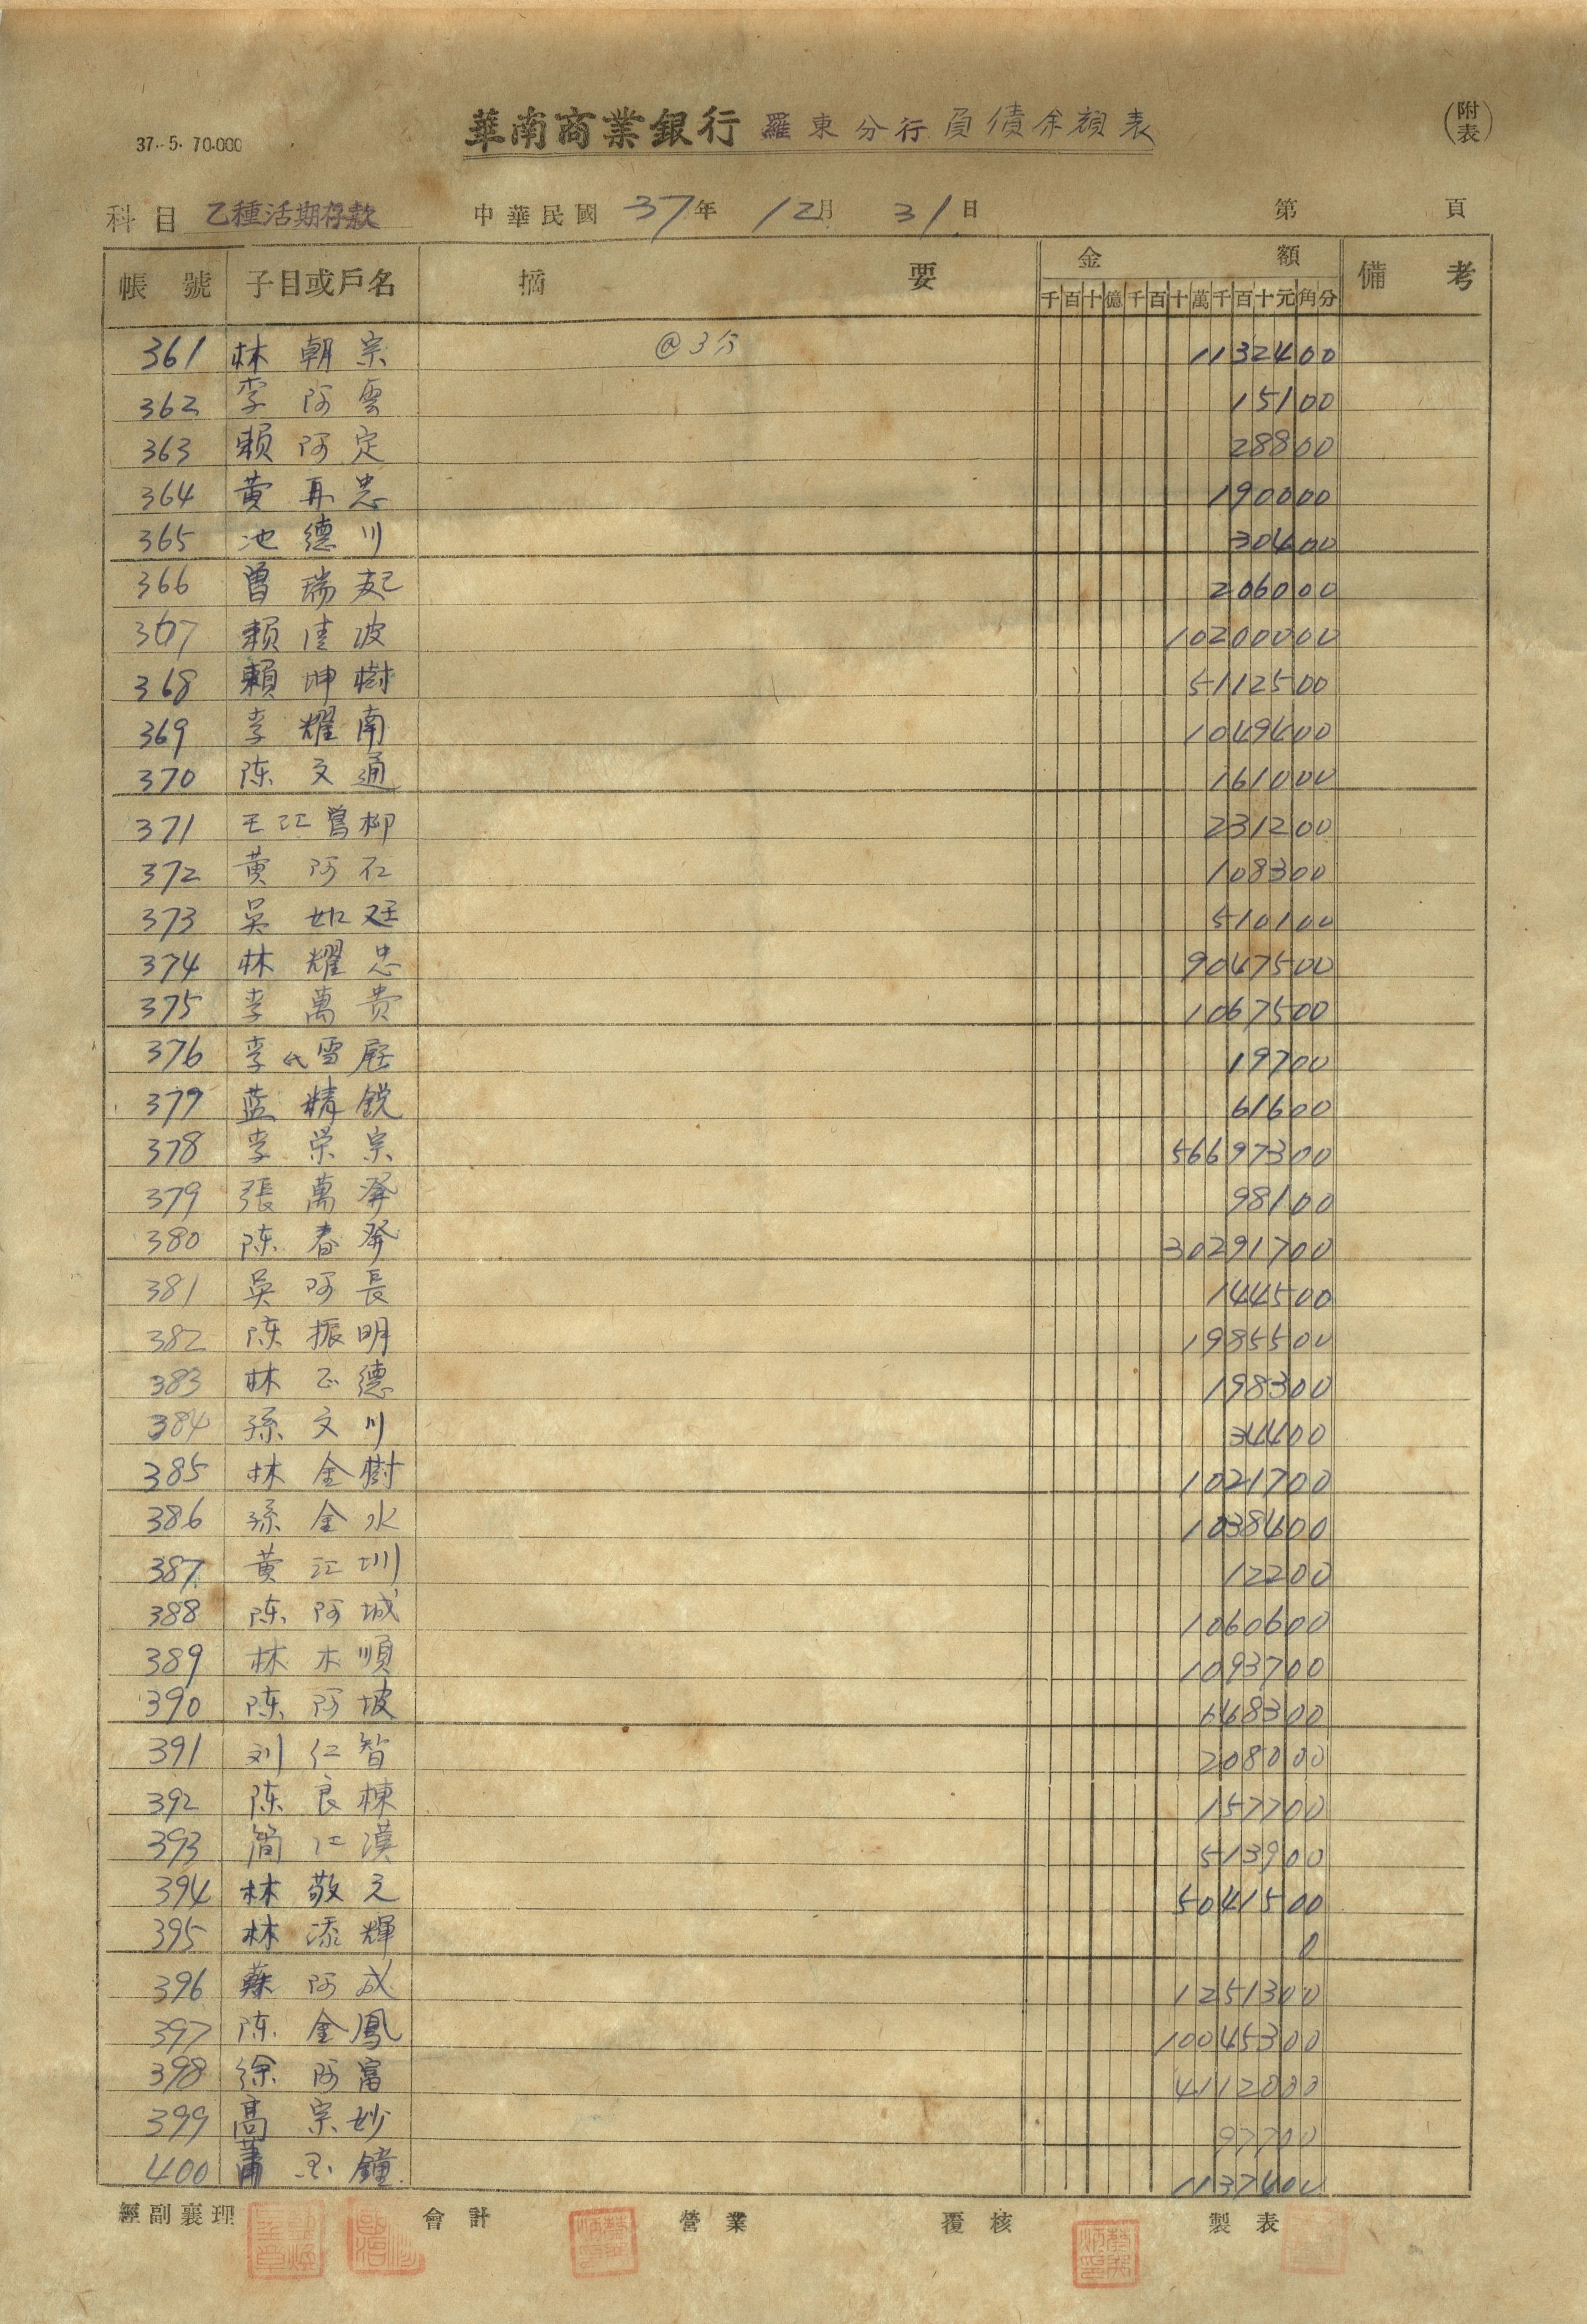 37.5.70.000
華南商業銀行 羅東分行 負債余額表
(附表)
科目 乙種活期存款 中華民國 37年 12月 31日 第 頁
帳號 子目或戶名 摘要 金額 備考
千百十億千百十萬千百十元角分
361 林朝宗 @3分 1132400
362 李阿雲 15100
363 賴阿定 28800
364 黃再忠 190000
365 池德川 30400
366 曾瑞起 206000
367 賴佳波 10200000
368 賴坤樹 5112500
369 李耀南 1049400
370 陈文通 161000
371 王江曾柳 231200
372 黃阿石 108300
373 吳如廷 510100
374 林耀忠 9047500
375 李萬贵 1067500
376 李氏雪 19700
377 蓝精銳 61600
378 李栄宗 56697300
379 張萬發 98100
380 陈春發 30291700
381 吳阿長 144500
382 陈振明 1985500
383 林正德 198300
384 孫文川 34400
385 林金樹 1021700
386 孫金水 1038400
387 黃江圳 12200
388 陈阿城 1060600
389 林木順 1093700
390 陈阿坡 648300
391 刘仁智 208000
392 陈良棟 157700
393 簡江漢 513900
394 林敬元 5041500
395 林添輝 0
396 蘇阿成 1251300
397 陈金鳳 10045300
398 徐阿富 4112000
399 高宗妙 97700
400 鐘 1137400
經副襄理 會計 營業 覆核 製表